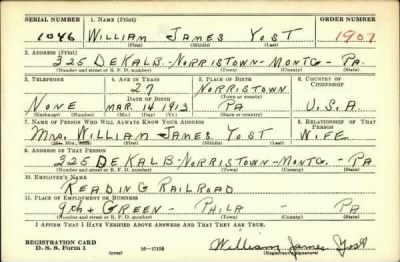 SERIAL NUMBER 1. NAME (Print) ORDER NUMBER
1046 WILLIAM JAMES YOST 1907
(First) (Middle) (Last)
2. ADDRESS (Print)
325 DEKALB-NORRISTOWN-MONTG-PA.
(Number and street or R. F. D. number) (Town) (County) (State)
3. TELEPHONE 4. AGE IN YEARS 5. PLACE OF BIRTH 6. COUNTRY OF CITIZENSHIP
27 NORRISTOWN
DATE OF BIRTH (Town or county)
NONE MAR. 14 1913 PA U.S.A
(Exchange) (Number) (Mo.) (Day) (Yr.) (State or country)
7. NAME OF PERSON WHO WILL ALWAYS KNOW YOUR ADDRESS 8. RELATIONSHIP OF THAT PERSON
Mrs. WILLIAM JAMES YOST WIFE
(Mr., Mrs., Miss) (First) (Middle) (Last)
9. ADDRESS OF THAT PERSON
325 DEKALB-NORRISTOWN-MONTG. - PA
(Number and street or R. F. D. number) (Town) (County) (State)
10. EMPLOYER'S NAME
READING RAILROAD
11. PLACE OF EMPLOYMENT OR BUSINESS
9th & GREEN - PHILA - PA
(Number and street or R. F. D. number) (Town) (County) (State)
I AFFIRM THAT I HAVE VERIFIED ABOVE ANSWERS AND THAT THEY ARE TRUE.
REGISTRATION CARD
D. S. S. Form 1 16-17105 William James Yost
(Registrant's signature)